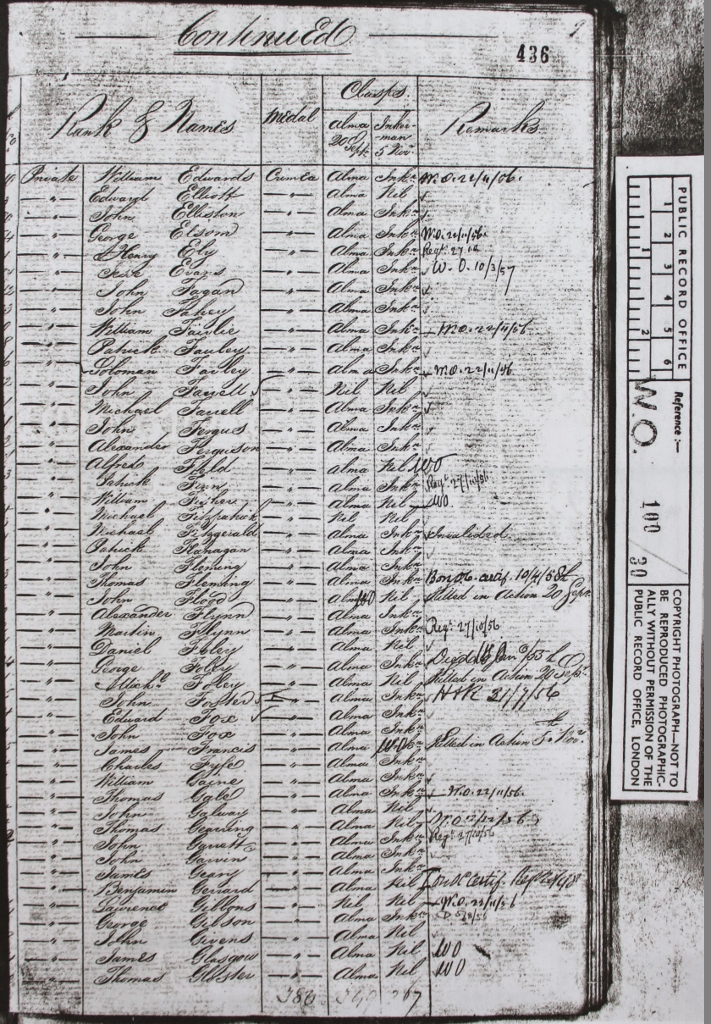 Continued
436
9
Rank & Names Medal Clasps Remarks
Alma 20 Sept Inker-man 5 Nov
Private William Edwards Crimea Alma Inkn W.O. 22/11/56.
-"- Edward Elliott -"- Alma Nil
-"- John Elliston -"- Alma Inkn
-"- George Elsom -"- Alma Inkn W.O. 22/11/56
-"- Henry Ely -"- Alma Inkn Regt. 27
-"- Evans -"- Alma Inkn W.O. 10/3/57
-"- John Fagan -"- Alma Inkn
-"- John Fahey -"- Alma Inkn
-"- William Fairlie -"- Alma Inkn W.O. 22/11/56
-"- Patrick Farley -"- Alma Inkn
-"- Soloman Farley -"- Alma Inkn W.O. 22/11/56
-"- John Farrell -"- Nil Nil
-"- Michael Farrell -"- Alma Inkn
-"- John Fergus -"- Alma Inkn
-"- Alexander Ferguson -"- Alma Inkn
-"- Alfred Field -"- Alma Nil WO
-"- Patrick Finn -"- Alma Inkn Regt. 27/10/56
-"- William Fisher -"- Alma Nil WO
-"- Michael Fitzpatrick -"- Nil Nil
-"- Michael Fitzgerald -"- Alma Inkn Invalided
-"- Patrick Flanagan -"- Alma Inkn
-"- John Fleming -"- Alma Inkn
-"- Thomas Fleming -"- Alma Inkn certif. 10/4/58
-"- John Flood -"- Alma WO Nil Killed in Action 20 Sept.
-"- Alexander Flynn -"- Alma Inkn
-"- Martin Flynn -"- Alma Inkn Regt. 27/10/56
-"- Daniel Foley -"- Alma Nil Died
-"- George Foley -"- Alma Inkn Killed in Action 20 Sept.
-"- Michl. Foley -"- Alma Nil 21/7/56
-"- John Forster -"- Alma Inkn
-"- Edward Fox -"- Alma Inkn
-"- John Fox -"- Alma Inkn
-"- James Francis -"- Alma WO Inkn Killed in Action 5th Nov.
-"- Charles Fyfe -"- Alma Inkn
-"- William Gaine -"- Alma Inkn
-"- Thomas Gale -"- Alma Inkn W.O. 22/11/56
-"- John Galway -"- Alma Nil
-"- Thomas Gearing -"- Alma Nil W.O.
-"- John Garrett -"- Alma Inkn Regt. 27/10/56
-"- John Garvin -"- Alma Inkn
-"- James Geary -"- Alma Inkn
-"- Benjamin Gerrard -"- Alma Nil Certif.
-"- Lawrence Gibbons -"- Nil Nil W.O. 22/11/56
-"- George Gibson -"- Alma Inkn
-"- John Givens -"- Alma Nil
-"- James Glasgow -"- Alma Nil WO
-"- Thomas Glister -"- Alma Nil WO
PUBLIC RECORD OFFICE
1 2 3 4 5 6
1 2
Reference :-
W.O. 100 / 30
COPYRIGHT PHOTOGRAPH—NOT TO
BE REPRODUCED PHOTOGRAPHIC-
ALLY WITHOUT PERMISSION OF THE
PUBLIC RECORD OFFICE, LONDON